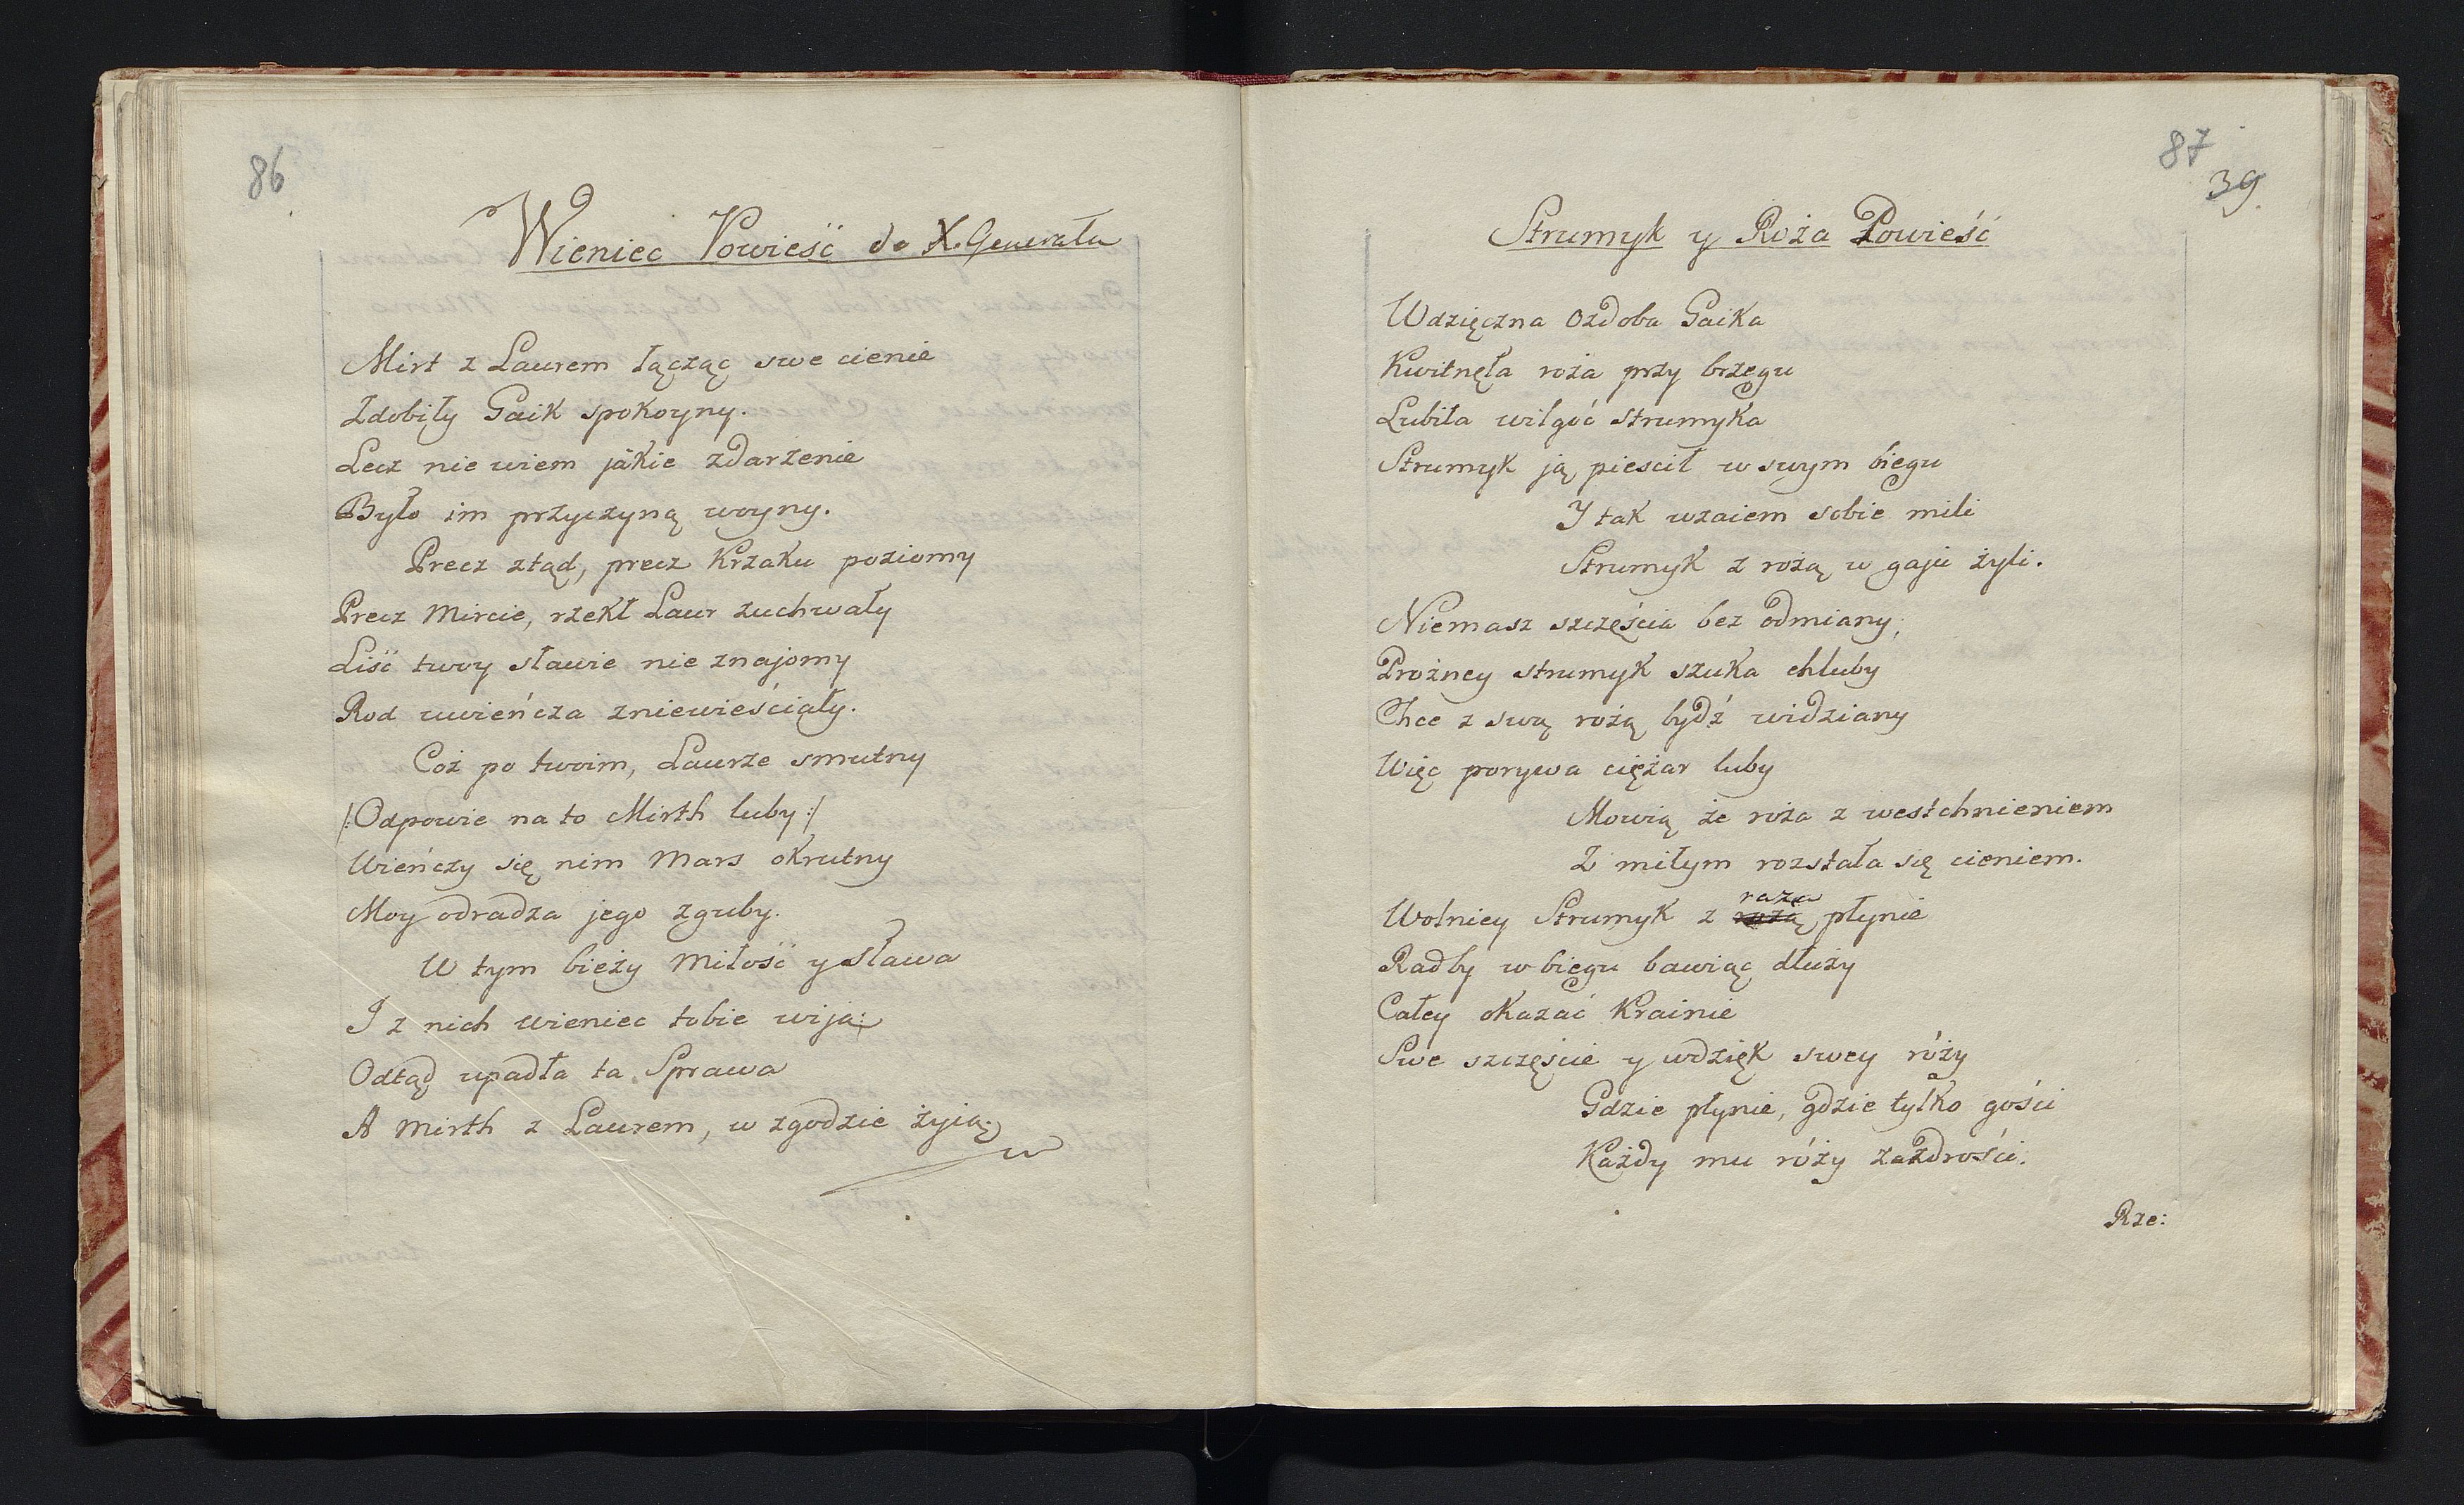 86
Wieniec Powieść do X. Generała
Mirt z Laurem łącząc swe cienie
Zdobiły Gaik spokoyny.
Lecz nie wiem jakie zdarzenie
Było im przyczyną woyny.
Precz ztąd, precz Krzaku poziomy
Precz Mircie, rzekł Laur zuchwały
Liść twoy sławie nie znajomy
Rod uwieńcza zniewieściały.
Coż po twoim, Laurze smutny
/:Odpowie na to Mirth luby:/
Wieńczy się nim Mars okrutny
Moy odradza jego zguby.
W tym bieży Miłość y Sława
I z nich wieniec tobie wiją:
Odtąd upadła ta Sprawa
A Mirth z Laurem, w zgodzie żyią.
87
39.
Strumyk y Roża Powieść
Wdzięczna Ozdoba Gaika
Kwitnęła roża przy brzegu
Lubiła wilgoć strumyka
Strumyk ją piescił w swym biegu
Y tak wzaiem sobie mili
Strumyk z rożą w gaju żyli.
Niemasz szczęścia bez odmiany,
Prożney strumyk szuka chluby
Chce z swą rożą bydź widziany
Więc porywa ciężar luby
Mowią że roża z westchnieniem
Z miłym rozstała się cieniem.
raza
Wolniey Strumyk z rożą płynie
Radby w biegu bawiąc dłuży
Całey okazać Krainie
Swe szczęście y wdzięk swey róży
Gdzie płynie, gdzie tylko gości
Każdy mu róży zazdrości.
Rze: